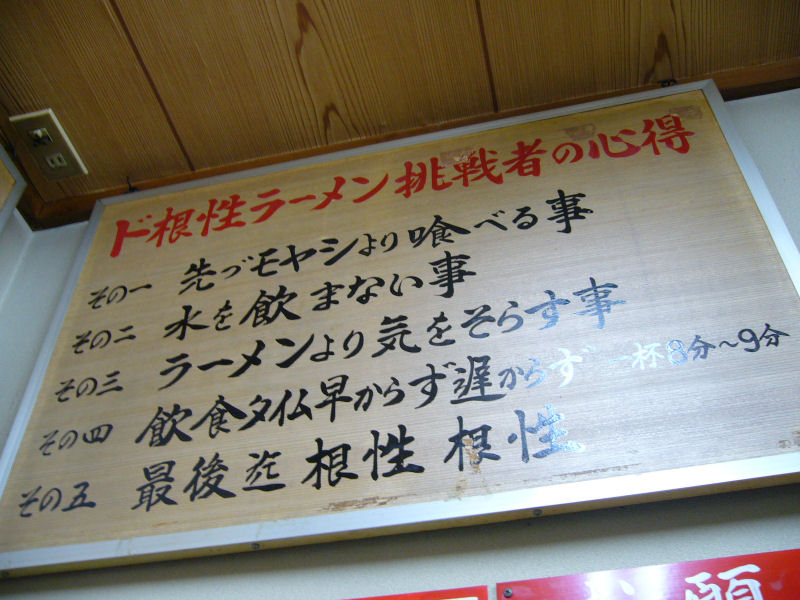 ド根性ラーメン挑戦者の心得
その一 先づモヤシより喰べる事
その二 水を飲まない事
その三 ラーメンより気をそらす事
その四 飲食タイム早からず遅からず 一杯8分～9分
その五 最後迄根性根性
願